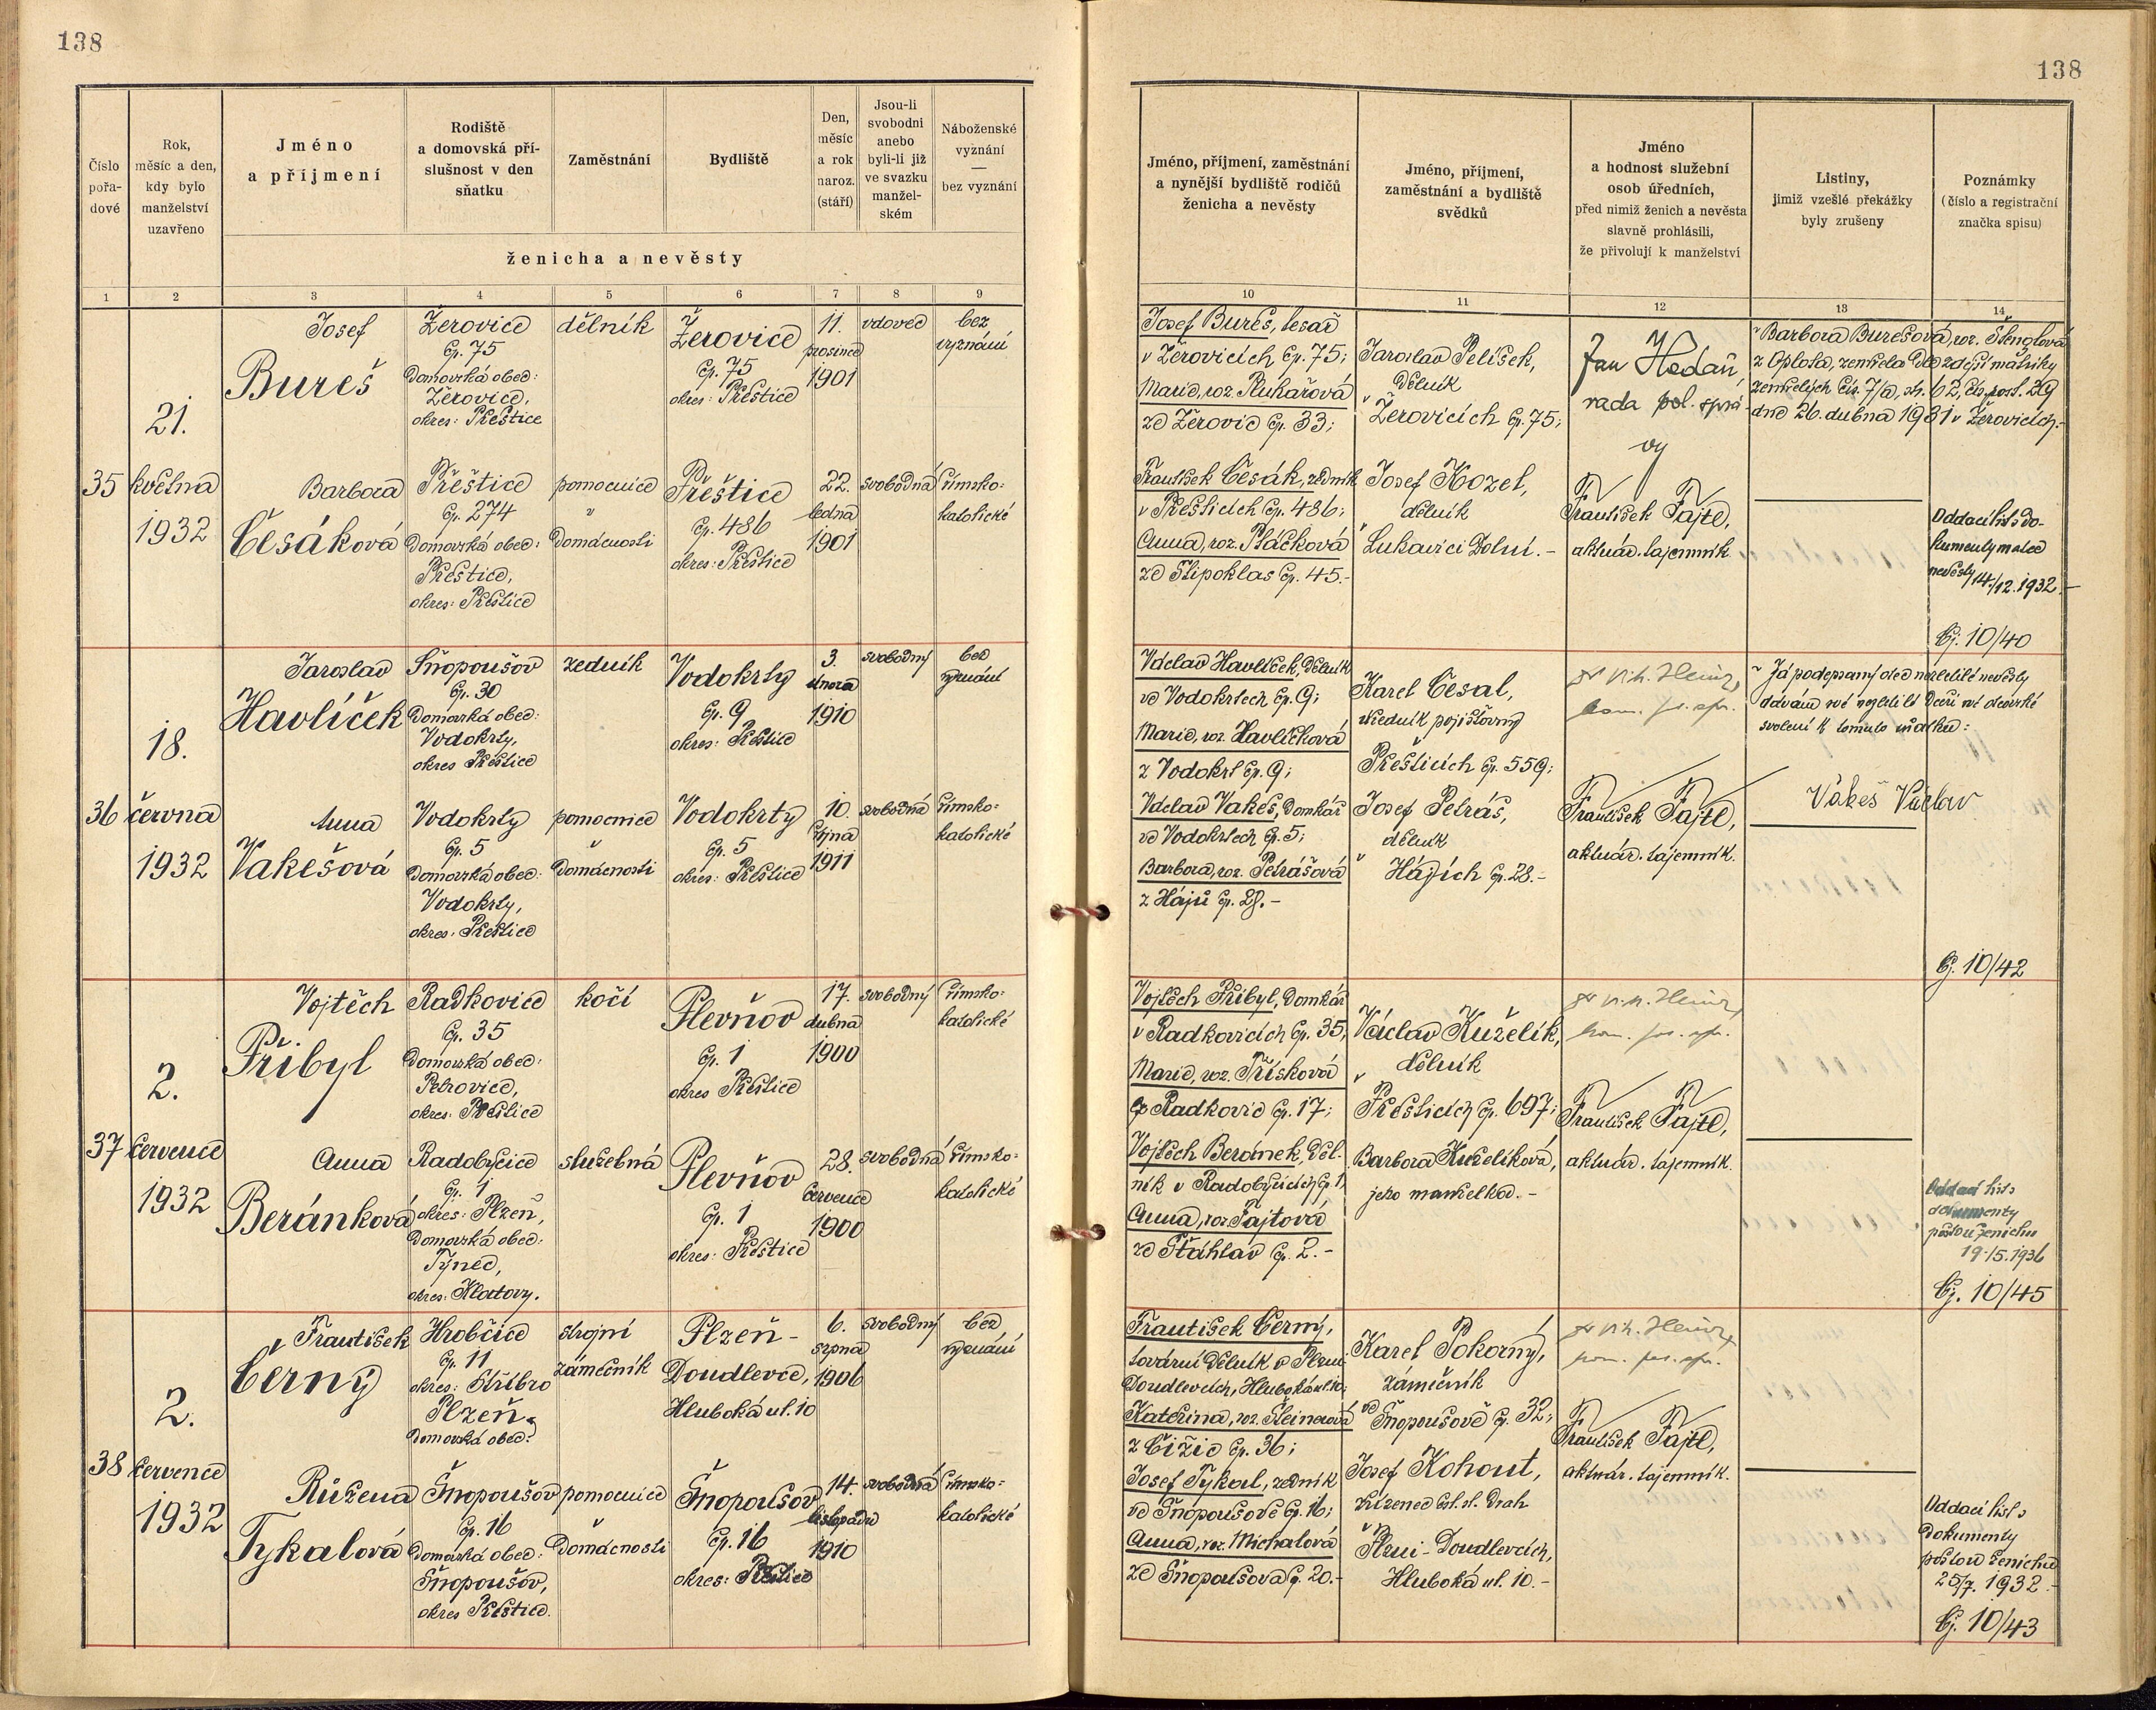 138
138
Číslo pořa-dové
Rok, měsíc a den, kdy bylo manželství uzavřeno
Jméno a příjmení
Rodiště a domovská pří-slušnost v den sňatku
Zaměstnání
Bydliště
Den, měsíc a rok naroz. (stáří)
Jsou-li svobodni anebo byli-li již ve svazku manžel-ském
Náboženské vyznání — bez vyznání
ženicha a nevěsty
Jméno, příjmení, zaměstnání a nynější bydliště rodičů ženicha a nevěsty
Jméno, příjmení, zaměstnání a bydliště svědků
Jméno a hodnost služební osob úředních, před nimiž ženich a nevěsta slavně prohlásili, že přivolují k manželství
Listiny, jimiž vzešlé překážky byly zrušeny
Poznámky (číslo a registrační značka spisu)
1 2 3 4 5 6 7 8 9 10 11 12 13 14
35
21.
května
1932
Josef
Bureš
Žerovice
čp. 75
Domovská obec:
Žerovice,
okres: Přeštice
dělník
Žerovice
čp. 75
okres: Přeštice
11.
prosince
1901
vdovec
bez
vyznání
Barbora
Česáková
Přeštice
čp. 274
Domovská obec:
Přeštice,
okres: Přeštice
pomocnice
v
domácnosti
Přeštice
čp. 486
okres: Přeštice
22.
ledna
1901
svobodná
římsko-
katolické
Josef Bureš, tesař
v Žerovicích čp. 75;
Marie, roz.
ze Žerovic čp. 33;
František Česák, zedník
v Přešticích čp. 486;
Anna, roz. Ptáčková
ze Štipoklas čp. 45.-
Jaroslav Pelíšek,
dělník
v
Žerovicích čp. 75;
Josef Kozel,
dělník
v
Lukavici Dolní.-
Jan
rada pol. sprá-
vy
František Fajtl,
aktuár. tajemník
Barbora Burešová, roz. Štenglová
z Oplota, zemřela dle zdejší matriky
zemřelých čís. 7/a, str. 62, čís. poř. 29
dne 26. dubna 1931 v Žerovicích.-
Oddací list s do-
kumenty matce
nevěsty 14./12. 1932.-
Čj. 10/40
36
18.
června
1932
Jaroslav
Havlíček
Šnopoušov
čp. 30
Domovská obec:
Vodokrty,
okres Přeštice
zedník
Vodokrty
čp. 9
okres: Přeštice
3.
února
1910
svobodný
bez
vyznání
Anna
Vakešová
Vodokrty
čp. 5
Domovská obec:
Vodokrty,
okres: Přeštice
pomocnice
v
domácnosti
Vodokrty
čp. 5
okres: Přeštice
10.
října
1911
svobodná
římsko-
katolické
Václav Havlíček, dělník
ve Vodokrtech čp. 9;
Marie, roz. Havlíčková
z Vodokrt čp. 9;
Václav Vakeš, domkář
ve Vodokrtech čp. 5;
Barbora, roz. Petrášová
z Hájů čp. 28.-
Karel Česal,
úředník pojišťovny
v
Přešticích čp. 559;
Josef Petráš,
dělník
v
Hájích čp. 28.-
František Fajtl,
aktuár. tajemník.
Já podepsaný otec nezletilé nevěsty
dávám své nezletilé dceři své otcovské
svolení k tomuto sňatku:
Vakeš Václav
Čj. 10/42
37
2.
července
1932
Vojtěch
Přibyl
Radkovice
čp. 35
Domovská obec:
Petrovice,
okres: Přeštice
kočí
Plevňov
čp. 1
okres Přeštice
17.
dubna
1900
svobodný
římsko-
katolické
Anna
Beránková
Radobyčice
čp. 1
okres: Plzeň,
Domovská obec:
Týnec,
okres: Klatovy.
služebná
Plevňov
čp. 1
okres: Přeštice
28.
července
1900
svobodná
římsko-
katolické
Vojtěch Přibyl, domkář
v Radkovicích čp. 35;
Marie, roz. Třísková
z Radkovic čp. 17;
Vojtěch Beránek, děl-
ník v Radobyčicích čp. 1
Anna, roz. Fajtová
ze Šťáhlav čp. 2.-
Václav Kuželík,
dělník
v
Přešticích čp. 697;
Barbora Kuželíková,
jeho manželka.-
František Fajtl,
aktuár. tajemník.
Oddací list s
dokumenty
poštou ženichu
19./5. 1936
Čj. 10/45
38
2.
července
1932
František
Černý
Hrobčice
čp. 11
okres: Stříbro
Plzeň
Domovská obec:
strojní
zámečník
Plzeň-
Doudlevce,
Hluboká ul. 10
6.
srpna
1906
svobodný
bez
vyznání
Růžena
Tykalová
Šnopoušov
čp. 16
Domovská obec:
Šnopoušov,
okres Přeštice.
pomocnice
v
domácnosti
Šnopoušov
čp. 16
okres: Přeštice
14.
listopadu
1910
svobodná
římsko-
katolické
František Černý,
tovární dělník v Plzni
Doudlevcích, Hluboká ul. 10;
Kateřina, roz. Šteinerová
z Čižic čp. 36;
Josef Tykal, zedník
ve Šnopoušově čp. 16;
Anna, roz. Michalová
ze Šnopoušova čp. 20.-
Karel Pokorný,
zámečník
ve Šnopoušově čp. 32;
Josef Kohout,
zřízenec čsl. st. drah
v
Plzni-Doudlevcích,
Hluboká ul. 10.-
František Fajtl,
aktuár. tajemník.
Oddací list s
dokumenty
poštou ženichu
25/7. 1932.-
Čj. 10/43